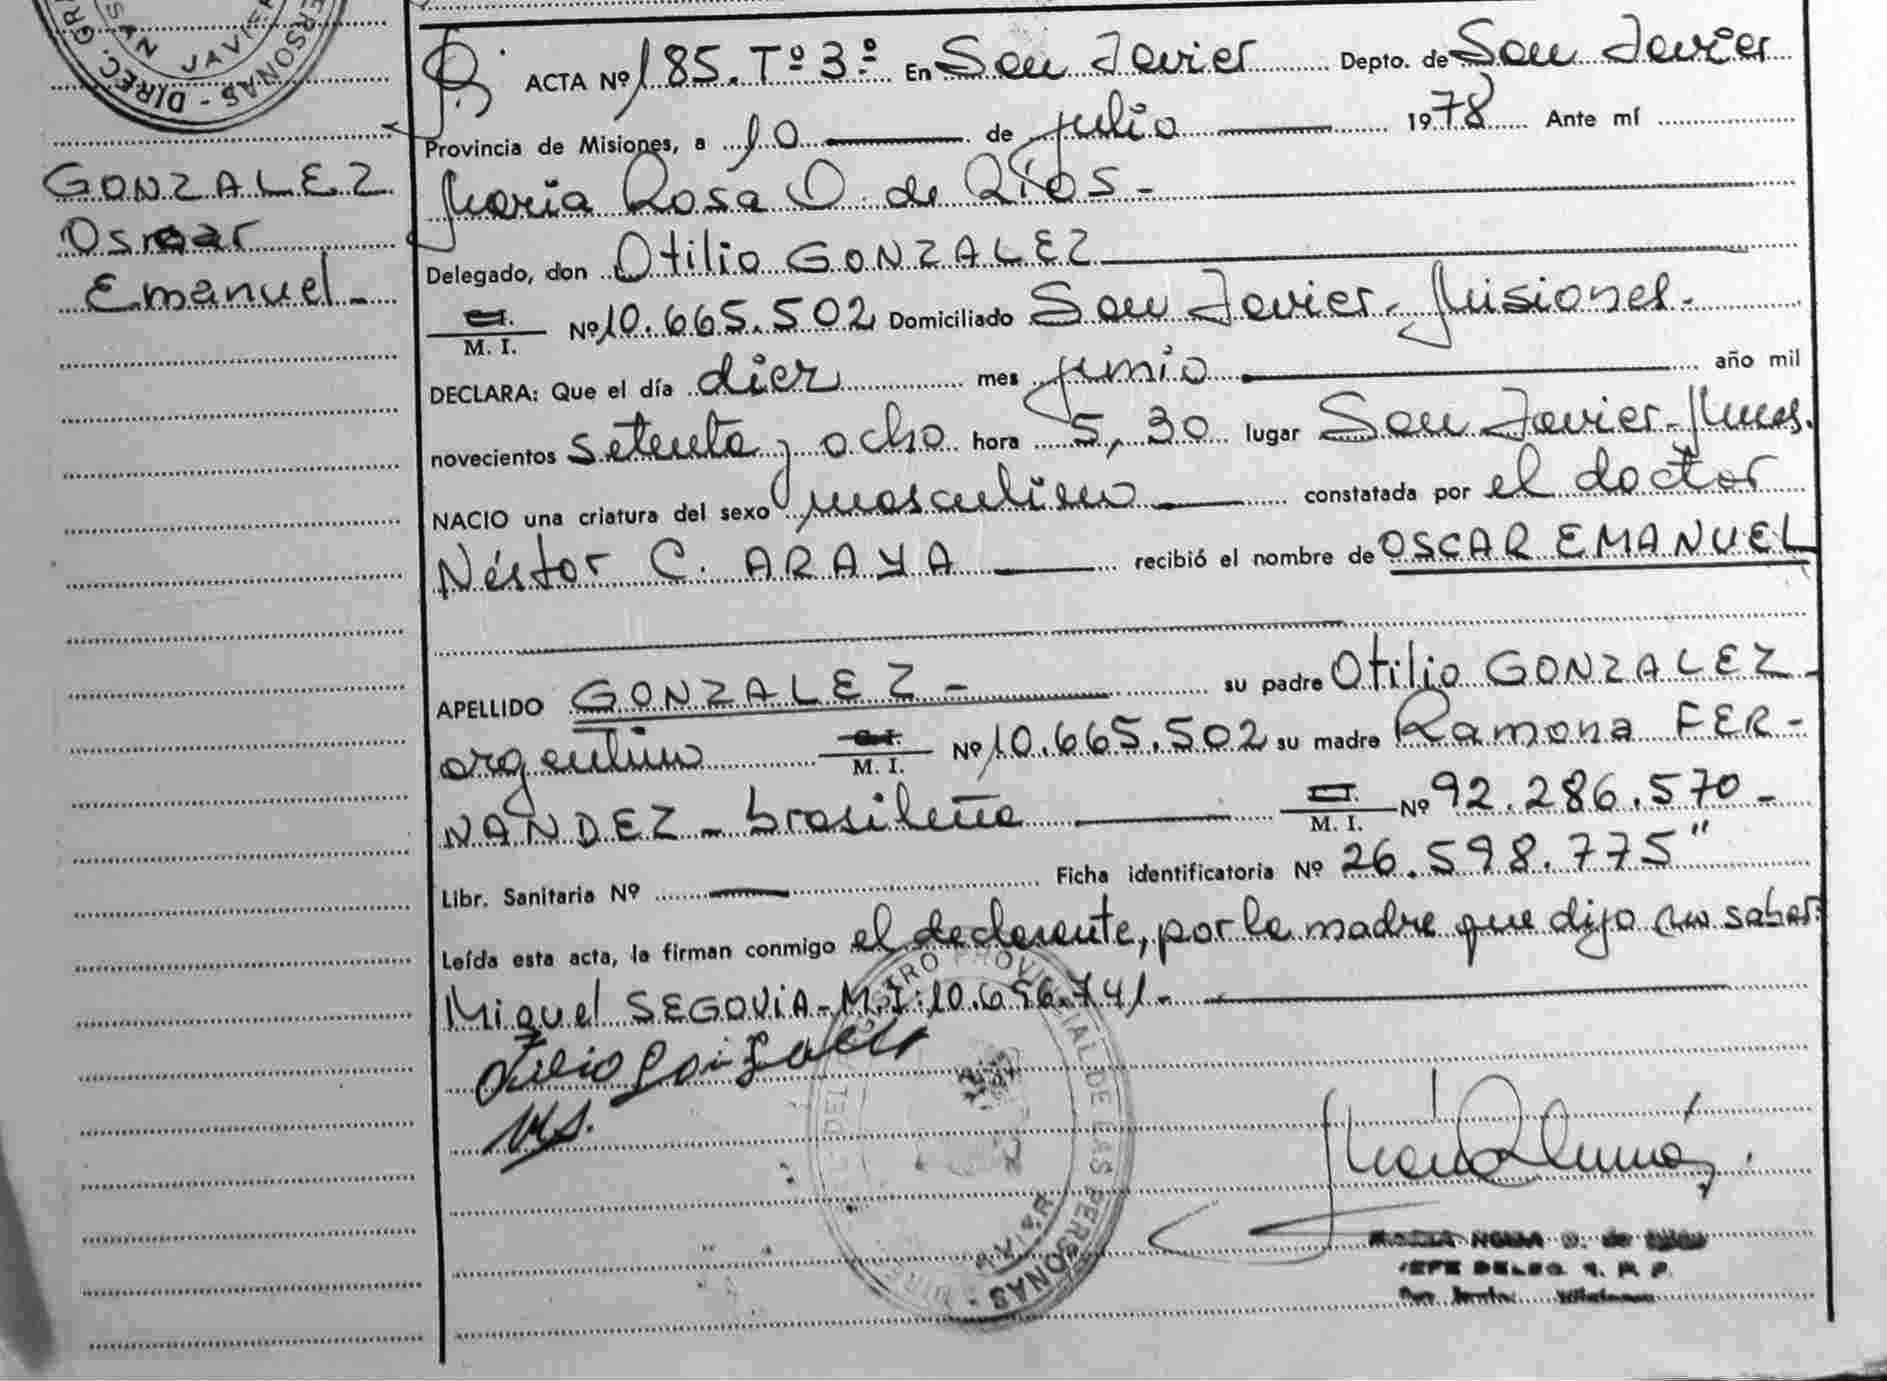 DIREC. GR
PERSONAS
SAN JAVI
GONZALEZ
Oscar
Emanuel
ACTA Nº 185. Tº 3º En San Javier Depto. de San Javier
Provincia de Misiones, a 10 de julio 1978 Ante mí
María Rosa O. de Ríos
Delegado, don Otilio GONZALEZ
C.I.
M. I. Nº 10.665.502 Domiciliado San Javier - Misiones.
DECLARA: Que el día diez mes junio año mil
novecientos setenta y ocho hora 5,30 lugar San Javier - Mnes.
NACIO una criatura del sexo masculino constatada por el doctor
Néstor C. ARAYA recibió el nombre de OSCAR EMANUEL
APELLIDO GONZALEZ - su padre Otilio GONZALEZ -
argentino C.I. M. I. Nº 10.665.502 su madre Ramona FER-
NANDEZ - brasileña C.I. M. I. Nº 92.286.570 -
Libr. Sanitaria Nº Ficha identificatoria Nº 26.598.775"
Leída esta acta, la firman conmigo el declarante, por la madre que dijo no saber:
Miguel SEGOVIA - M.I: 10.656.741 -
Otilio Gonzalez
M.S.
REGISTRO PROVINCIAL DE LAS PERSONAS
O. de
JEFE DELEG. R. P. P.